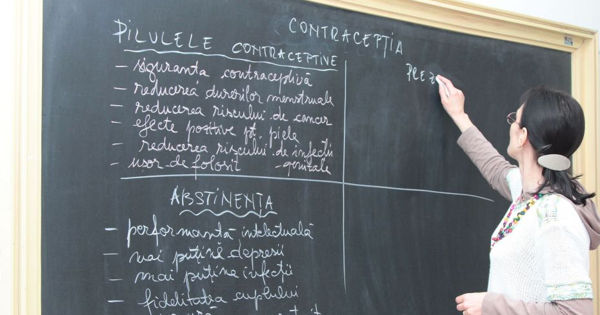 CONTRACEPȚIA
PILULELE CONTRACEPTIVE
– siguranta contraceptivă
– reducerea durerilor menstruale
– reducerea riscului de cancer
– efecte pozitive pt. piele
– reducerea riscului de infecții
– usor de folosit – genitale
ABSTINENȚA
– performantă intelectuală
– mai puține depresii
– mai puține infecții
– fidelitatea cuplului
PREZ